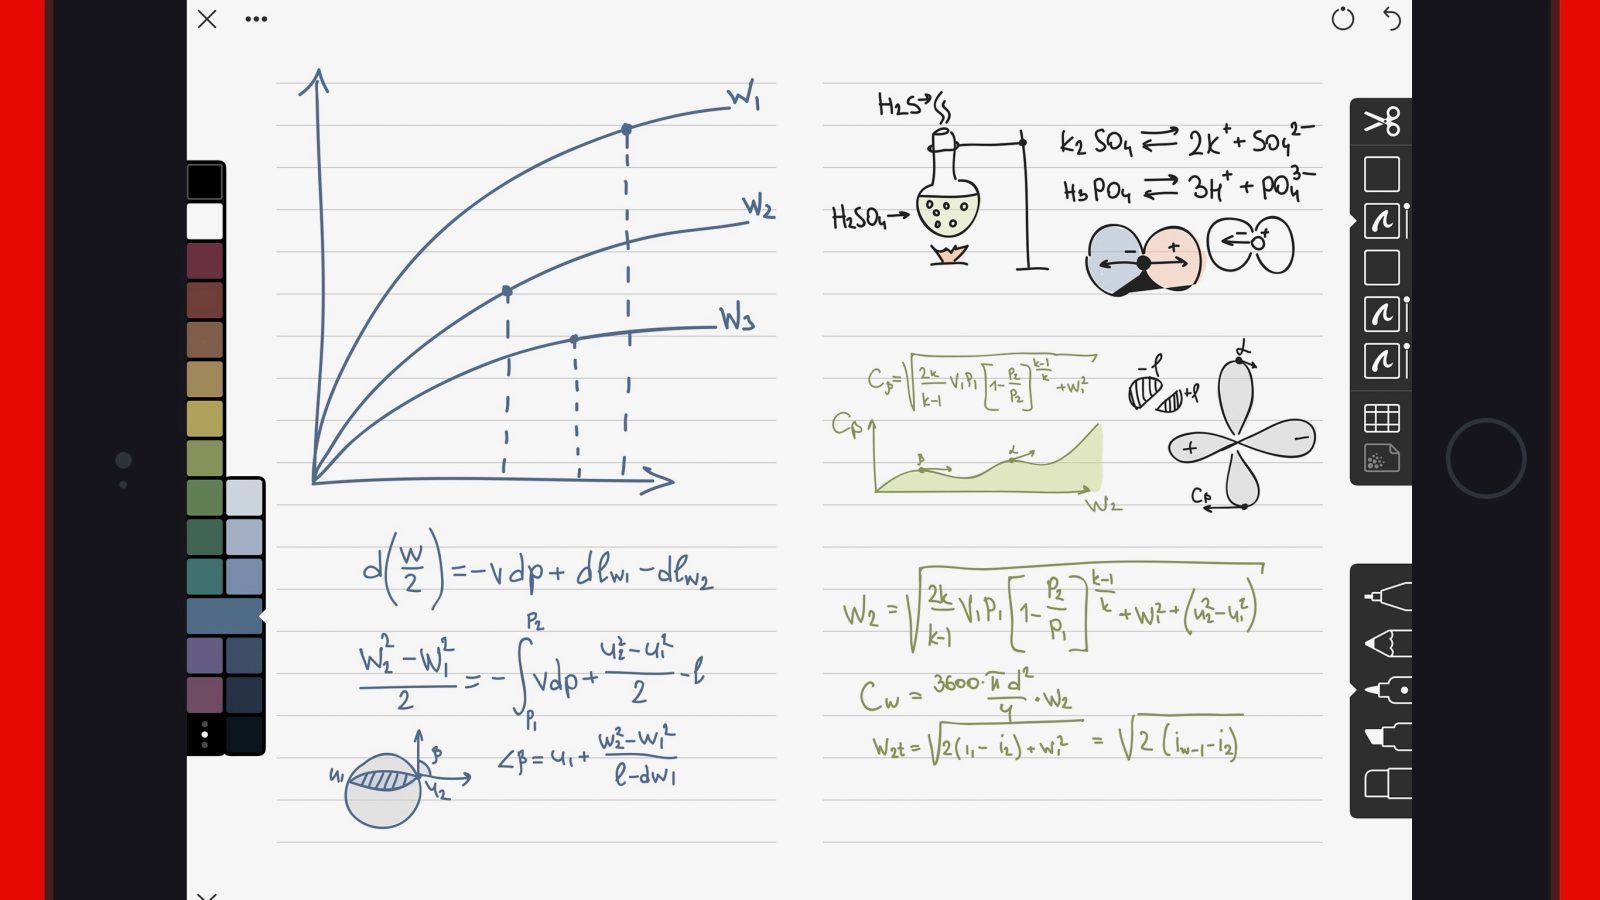 W₁
W₂
W₃
d(W/2) = -vdp + dl_w₁ - dl_w₂
(W₂² - W₁²)/2 = -∫_P₁^P₂ vdp + (u₂² - u₁²)/2 - l
u₁
β
u₂
∠β = u₁ + (w₂² - w₁²)/(l - dw₁)
H₂S→
H₂SO₄→
K₂SO₄ ⇄ 2K⁺ + SO₄²⁻
H₃PO₄ ⇄ 3H⁺ + PO₄³⁻
- +
- +
Cᵦ = √(2k/(k-1) V₁P₁ [1 - P₂/P₂]^((k-1)/k) + W₁²)
Cᵦ
β
α
W₂
-l
+l
α
+ -
Cᵦ
W₂ = √(2k/(k-1) V₁P₁ [1 - P₂/P₁]^((k-1)/k) + W₁² + (u₂² - u₁²))
C_w = (3600·π d²)/4 · W₂
W₂t = √(2(i₁ - i₂) + w₁²) = √(2(i_w-1 - i₂))